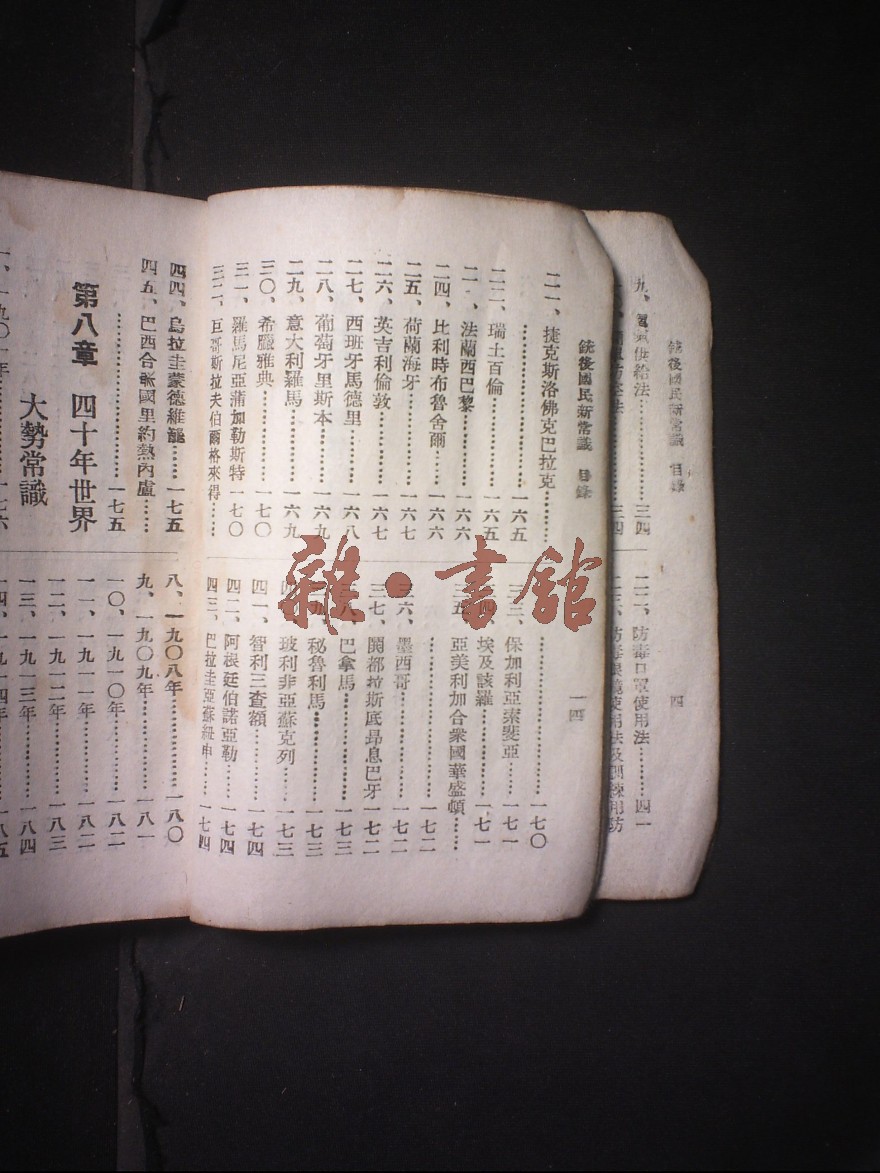 銃後國民新常識　目錄
四
九、氧氣供給法…………三四
防毒口罩使用法…………四一
銃後國民新常識　目錄
一四
二一、捷克斯洛佛克巴拉克…………
…………一六五
二二、瑞士百倫…………一六五
法蘭西巴黎…………一六六
二四、比利時布魯舍爾…………一六六
二五、荷蘭海牙…………一六七
二六、英吉利倫敦…………一六七
二七、西班牙馬德里…………一六八
二八、葡萄牙里斯本…………一六九
二九、意大利羅馬…………一六九
三〇、希臘雅典…………一七〇
三一、羅馬尼亞蒲加勒斯特一七〇
三二、巨哥斯拉夫伯爾格來得……
…………一七〇
三三、保加利亞索斐亞……一七一
埃及該羅…………一七一
三五、亞美利加合衆國華盛頓……
…………一七二
三六、墨西哥…………一七二
三七、閧都拉斯底昂息巴牙一七二
巴拿馬…………一七三
秘魯利馬…………一七三
玻利非亞蘇克列……一七三
四一、智利三查額…………一七四
四二、阿根廷伯諾亞勒……一七四
四三、巴拉圭亞蘇紐申……一七四
四四、烏拉圭蒙德維籠……一七五
四五、巴西合衆國里約熱內盧……
…………一七五
第八章　四十年世界
大勢常識
一、一九〇一年…………一七六
八、一九〇八年…………一八〇
九、一九〇九年…………一八一
一〇、一九一〇年…………一八二
一一、一九一一年…………一八二
一二、一九一二年…………一八三
一三、一九一三年…………一八四
一四、一九一四年…………一八五
雜·書館